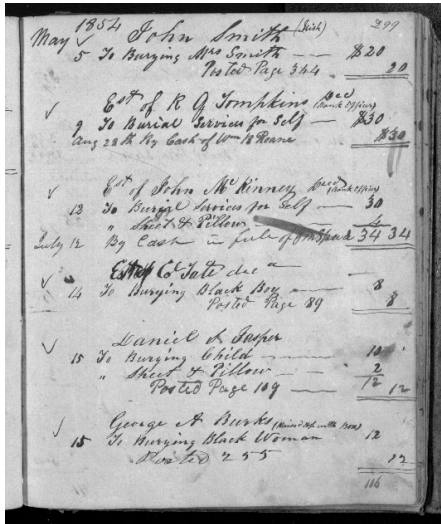 May 1854 John Smith (Irish) 299
5 To Burying Mrs Smith $20
Posted Page 344 20
Est of R G Tompkins Decd (Bank Officer)
9 To Burial Services for Self $30
Aug 28th By Cash of Wm B Roane $30
Est of John McKinney Decd (Bank Officer)
12 To Burial Services for Self 30
" Sheet & Pillow 4
July 12 By Cash in full of 34 34
Tate dec
14 To Burying Black Boy 8
Posted Page 89 8
Daniel A Jasper
15 To Burying Child 10
" Sheet & Pillow 2
Posted Page 109 12 12
George A Burks
15 To Burying Black Woman 12
Posted 255 12
116